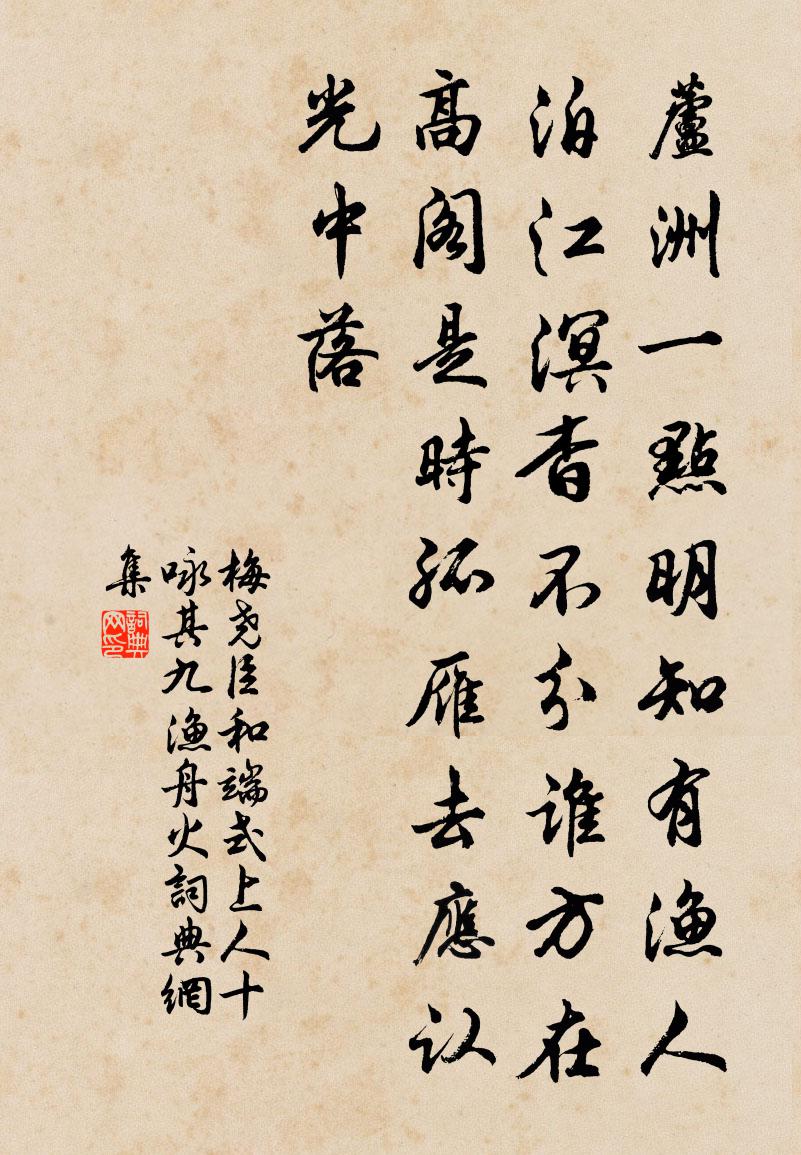 蘆洲一點明知有漁人
泊江溟杳不分誰方在
高閣是時孤雁去應认
光中落
梅尭臣和端式上人十
咏其九漁舟火詞典網
集
詞典
网印